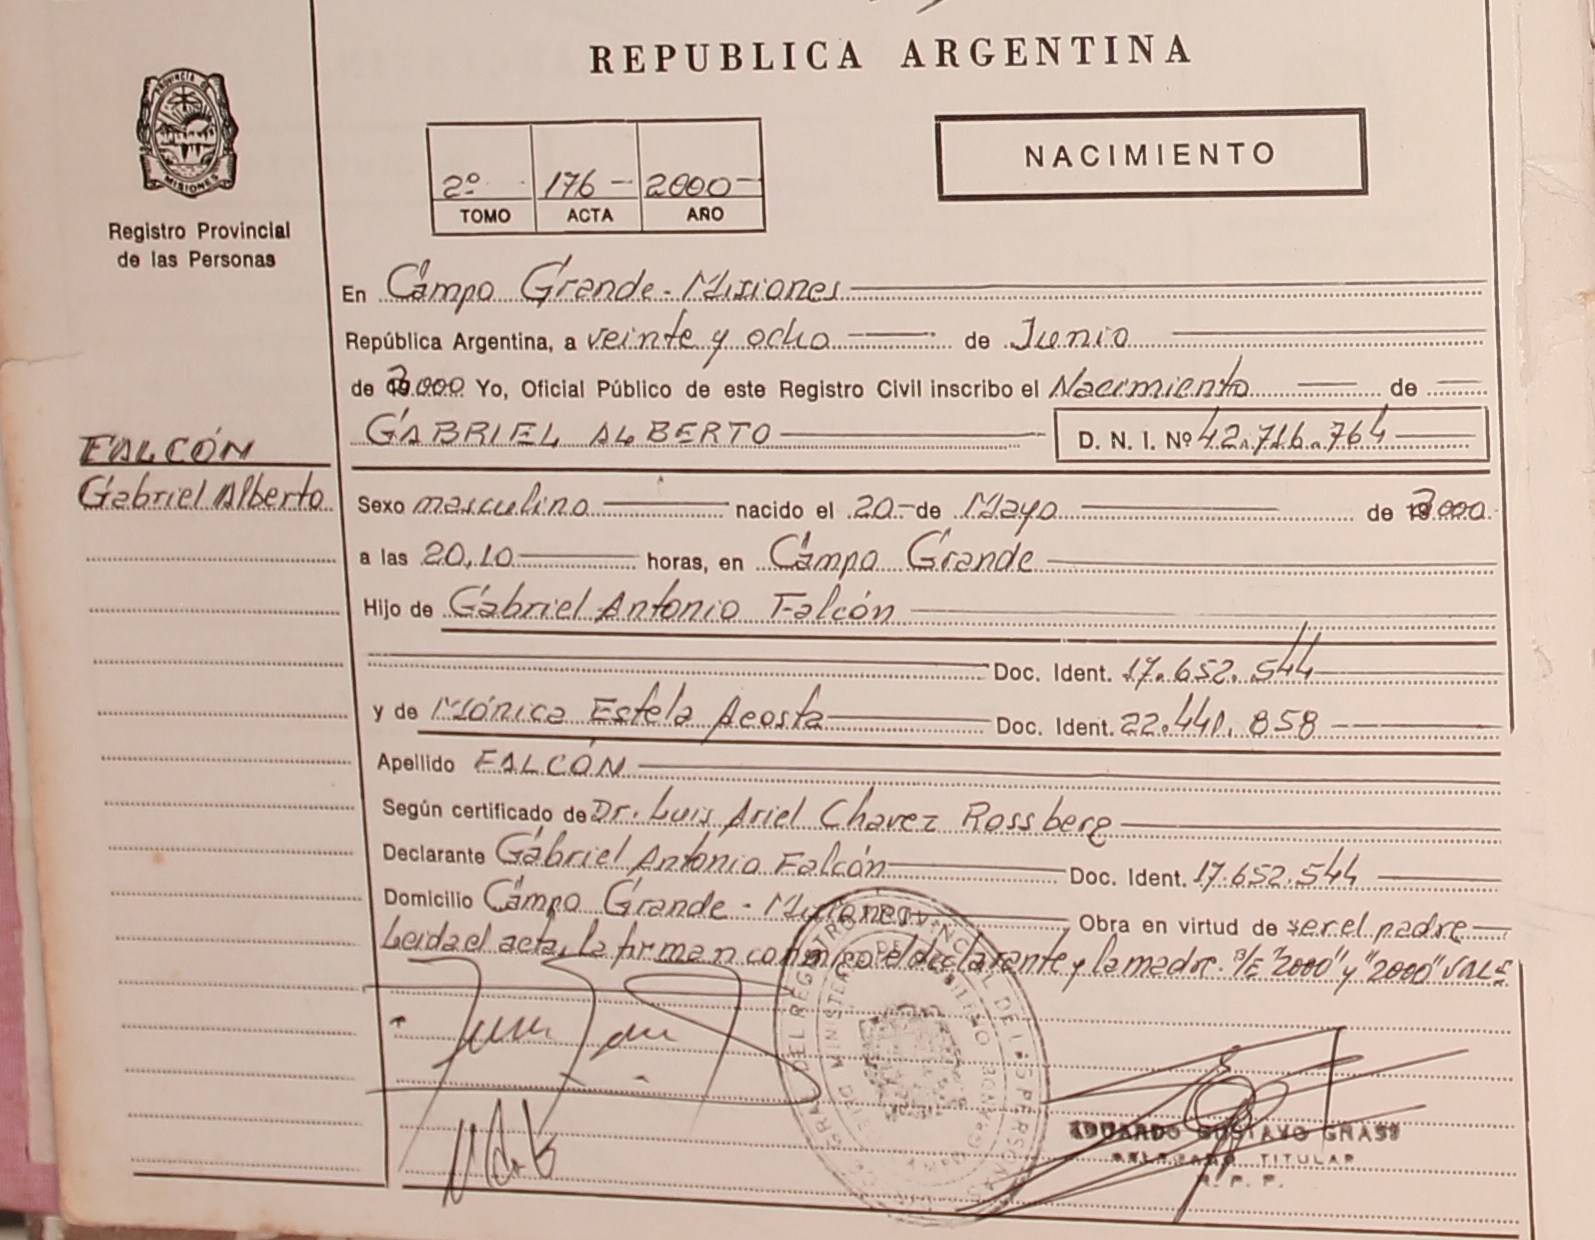 REPUBLICA ARGENTINA
PROVINCIA DE
MISIONES
Registro Provincial
de las Personas
2º 176 2000
TOMO ACTA AÑO
NACIMIENTO
En Campo Grande - Misiones
República Argentina, a veinte y ocho de Junio
de 2.000 Yo, Oficial Público de este Registro Civil inscribo el Nacimiento de
GABRIEL ALBERTO D. N. I. Nº 42.716.764
FALCÓN
Gabriel Alberto
Sexo masculino nacido el 20 de Mayo de 2.000
a las 20,10 horas, en Campo Grande
Hijo de Gabriel Antonio Falcón
Doc. Ident. 17.652.544
y de Mónica Estela Acosta Doc. Ident. 22.441.858
Apellido FALCÓN
Según certificado de Dr. Luis Ariel Chavez Rossberg
Declarante Gabriel Antonio Falcón Doc. Ident. 17.652.544
Domicilio Campo Grande - Misiones Obra en virtud de ser el padre
Leida el acta, la firman conmigo el declarante y la madre. S/E "2000" y "2000" VALE
EDUARDO GUSTAVO GRASS
DELEGADO TITULAR
R. P. P.